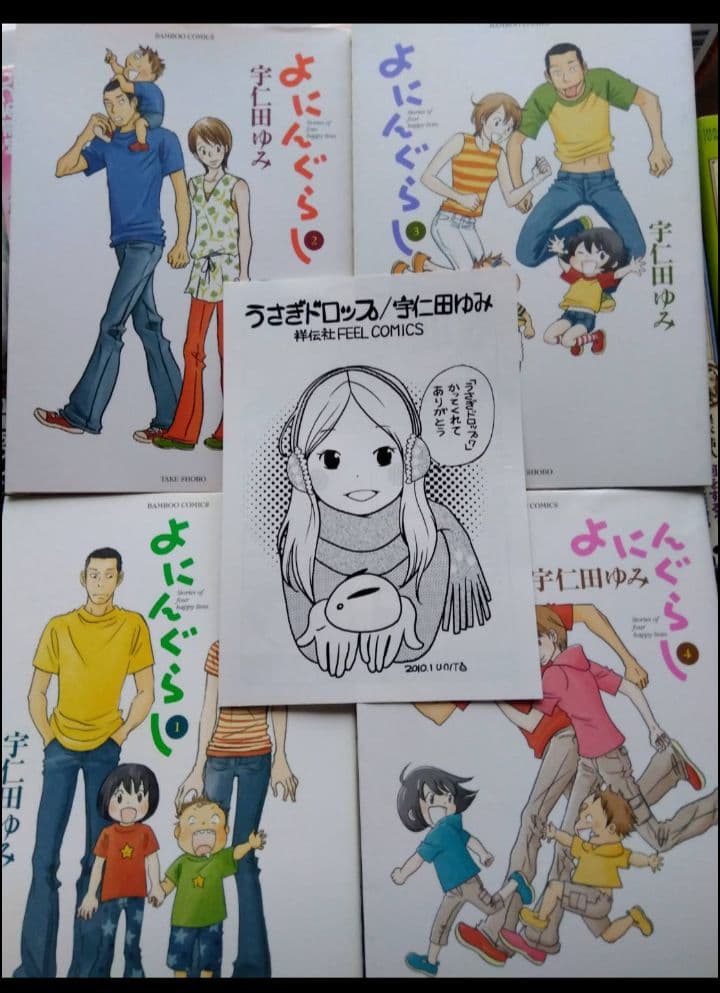 BAMBOO COMICS
よにんぐらし
Stories of
four
happy lives
宇仁田ゆみ
2
TAKE SHOBO
BAMBOO COMICS
よにんぐらし
Stories of
four
happy lives
3
宇仁田ゆみ
SHOBO
うさぎドロップ/宇仁田ゆみ
祥伝社 FEEL COMICS
「うさぎドロップ」
かってくれて
ありがとう
2010.1 UNITA
BAMBOO COMICS
よにんぐらし
Stories of
four
happy lives
1
宇仁田ゆみ
COMICS
よにんぐらし
宇仁田ゆみ
Stories of
four
happy lives
4